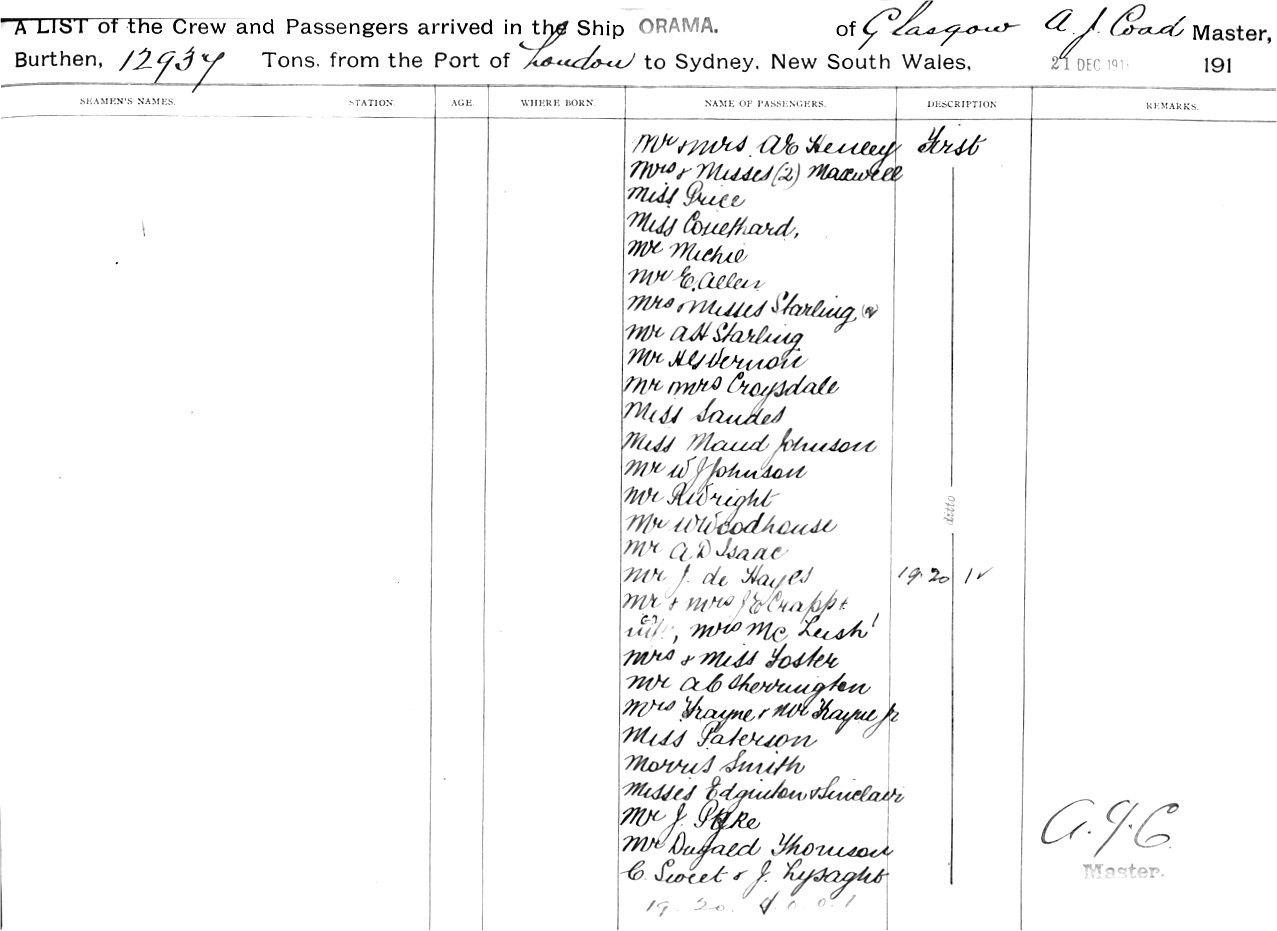 A LIST of the Crew and Passengers arrived in the Ship ORAMA. of Glasgow A. J. Coad Master,
Burthen, 12937 Tons, from the Port of London to Sydney, New South Wales, 21 DEC 191 191
SEAMEN'S NAMES. STATION. AGE. WHERE BORN. NAME OF PASSENGERS. DESCRIPTION REMARKS.
Mr & Mrs AE Henley First
Mrs & Misses (2) Maxwell
Miss Price
Miss Coulthard,
Mr Michie
Mr E. Allen
Mrs & Misses Starling (2)
Mr AH Starling
Mr Vernon
Mr Mrs Croysdale
Miss Sandes
Miss Maud Johnson
Mr W J Johnson
Mr R Wright
Mr W Woodhouse
ditto
Mr A D Isaac
Mr J. de Hayes 19. 20 1
Mr & Mrs J E Crapp &
Mrs Mc Leish
Mrs & Miss Foster
Mr A C Sherrington
Mrs Frayne & Mr Frayne Jr
Miss Paterson
Morris Smith
Misses Edginton & Sinclair
Mr J. Pyke
Mr Dugald Thomson
C. Sweet & J. Lysaght
A. J. C.
Master.
19. 20.